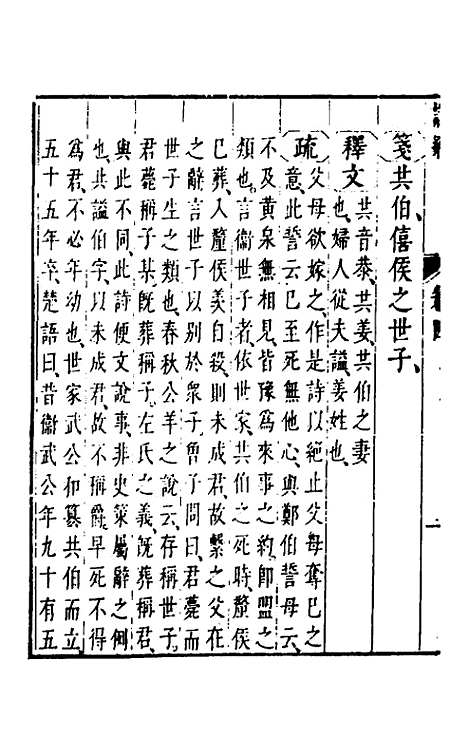 箋共伯僖侯之世子
釋文共音恭共姜共伯之妻
也婦人從夫謚姜姓也
疏父母欲嫁之作是詩以絕止父母奪已之
意此誓云已至死無他心與鄭伯誓母云
不及黃泉無相見皆豫為來事之約即盟之
類也言衞世子者依世家共伯之死時釐侯
已葬入釐侯羨自殺則未成君故繫之父在
之辭言世子以別於衆子曾子問曰君薨而
世子生之類也春秋公羊之說云存稱世子
君薨稱子某旣葬稱子左氏之義旣葬稱君
與此不同此詩便文說事非史策屬辭之例
也共謚伯字以未成君故不稱爵早死不得
為君不必年幼也世家武公和篡共伯而立
五十五年卒楚語曰昔衞武公年九十有五
卷四
一